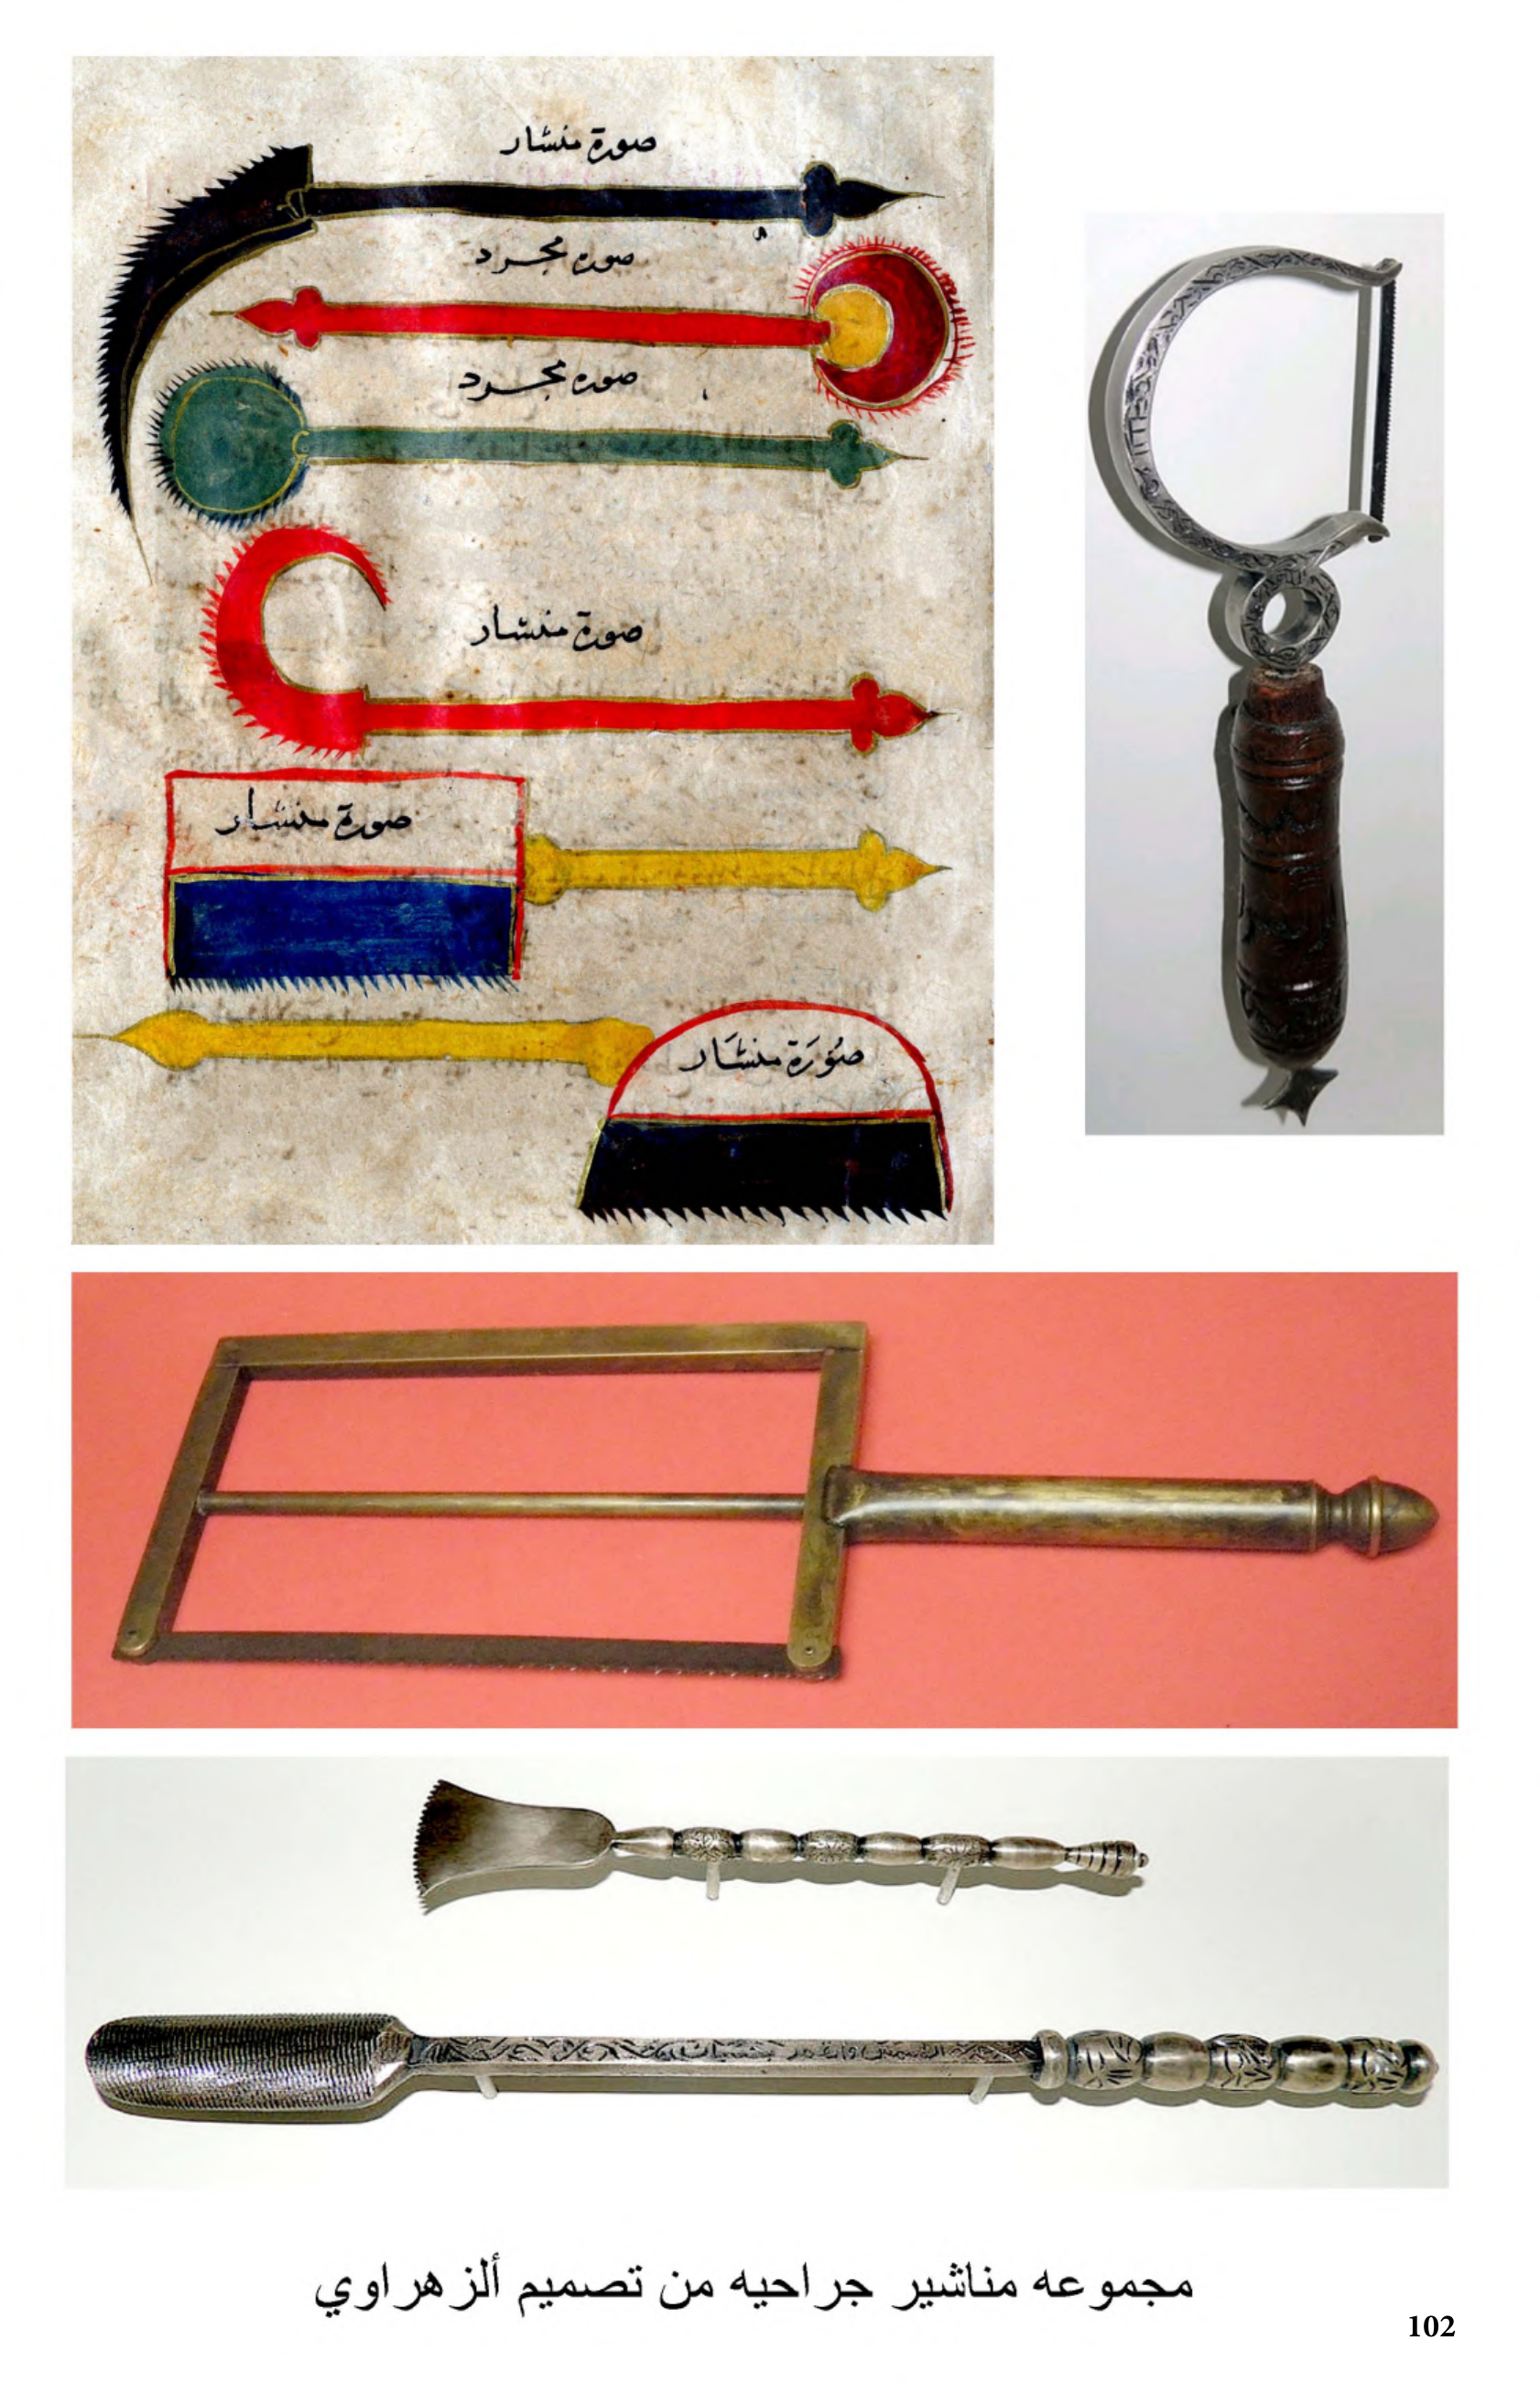 صورة منشار
صوره مجرد
صوره مجرد
صورة منشار
صورة منشار
صُورَة منشَار
مجموعه مناشير جراحيه من تصميم ألزهراوي
102